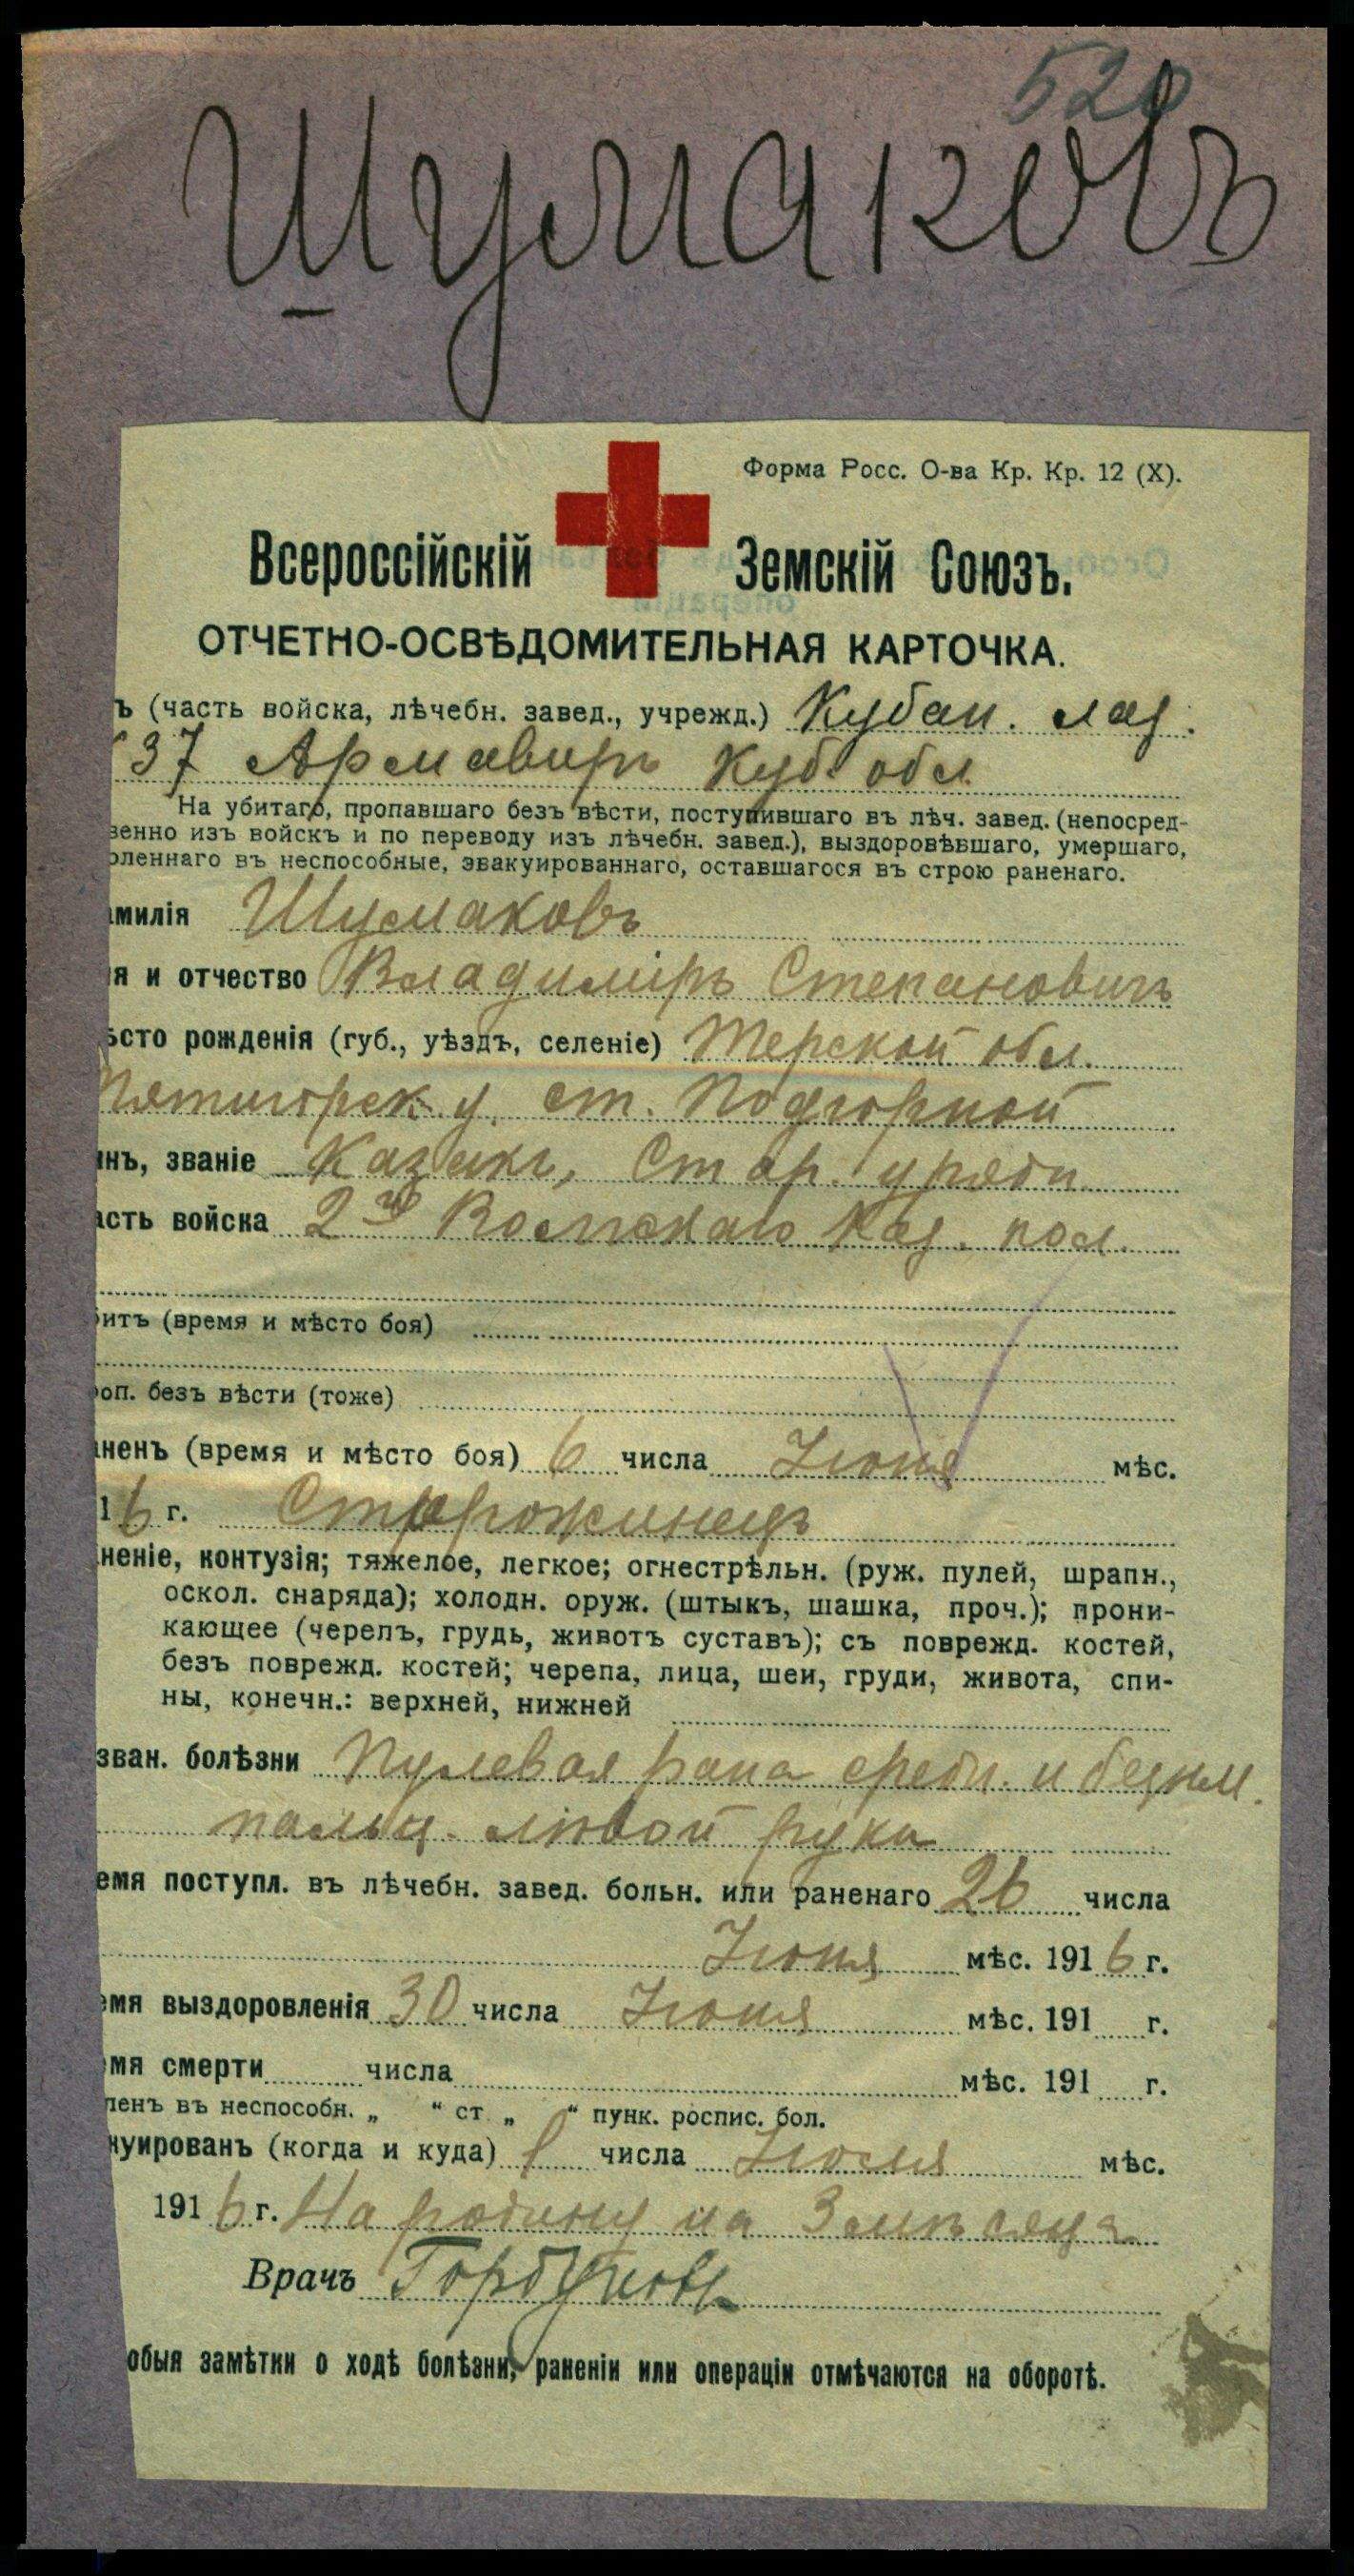 520
Шумаковъ
Форма Росс. О-ва Кр. Кр. 12 (X).
Всероссійскій Земскій Союзъ.
ОТЧЕТНО-ОСВѢДОМИТЕЛЬНАЯ КАРТОЧКА.
ъ (часть войска, лѣчебн. завед., учрежд.) Кубан. лаз.
37 Армавиръ Куб. обл
На убитаго, пропавшаго безъ вѣсти, поступившаго въ лѣч. завед. (непосред-
венно изъ войскъ и по переводу изъ лѣчебн. завед.), выздоровѣвшаго, умершаго,
оленнаго въ неспособные, эвакуированнаго, оставшагося въ строю раненаго.
амилія Шумаковъ
я и отчество Владиміръ Степановичъ
ѣсто рожденія (губ., уѣздъ, селеніе) Терской обл.
Пятигорск у. ст. Подгорной
инъ, званіе Казакъ, Стар. урядн.
асть войска 2го Волгскаго Каз. пол.
битъ (время и мѣсто боя)
роп. безъ вѣсти (тоже)
аненъ (время и мѣсто боя) 6 числа Іюня мѣс.
1 6 г. Сторожинецъ
неніе, контузія; тяжелое, легкое; огнестрѣльн. (руж. пулей, шрапн.,
оскол. снаряда); холодн. оруж. (штыкъ, шашка, проч.); прони-
кающее (черепъ, грудь, животъ суставъ); съ поврежд. костей,
безъ поврежд. костей; черепа, лица, шеи, груди, живота, спи-
ны, конечн.: верхней, нижней
зван. болѣзни Пулевая рана средн. и безым.
пальц. лѣвой руки
емя поступл. въ лѣчебн. завед. больн. или раненаго 26 числа
Іюня мѣс. 1916 г.
емя выздоровленія 30 числа Іюня мѣс. 191 г.
емя смерти числа мѣс. 191 г.
ленъ въ неспособн. „ “ ст „ “ пунк. роспис. бол.
нуированъ (когда и куда) 1 числа Іюля мѣс.
1916 г. На родину на 3 мѣсяца
Врачъ Горбуновъ
обыя замѣтки о ходѣ болѣзни, раненіи или операціи отмѣчаются на оборотѣ.